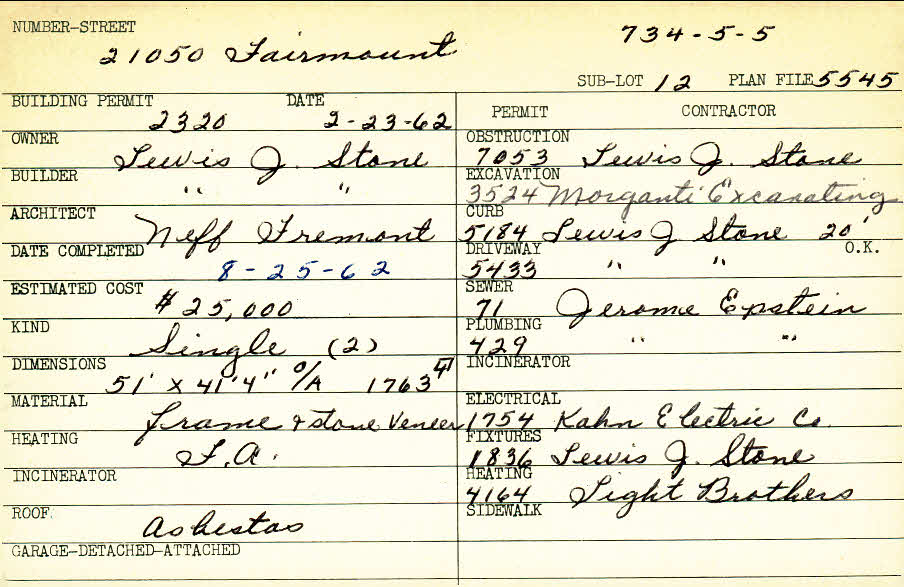 NUMBER-STREET
21050 Fairmount 734-5-5
SUB-LOT 12 PLAN FILE 5545
BUILDING PERMIT DATE
2320 2-23-62
OWNER
Lewis J. Stone
BUILDER
" "
ARCHITECT
Neff Fremont
DATE COMPLETED
8-25-62
ESTIMATED COST
# 25,000
KIND
Single (2)
DIMENSIONS
51' x 41'4" O/A 1763
MATERIAL
frame & stone Veneer
HEATING
F.A.
INCINERATOR
ROOF
Asbestos
GARAGE-DETACHED-ATTACHED
PERMIT CONTRACTOR
OBSTRUCTION
7053 Lewis J. Stone
EXCAVATION
3524 Morganti Excavating
CURB
5184 Lewis J Stone 20'
DRIVEWAY O.K.
5433 " "
SEWER
71 Jerome Epstein
PLUMBING
429 " "
INCINERATOR
ELECTRICAL
1754 Kahn Electric Co.
FIXTURES
1836 Lewis J. Stone
HEATING
4164 Sight Brothers
SIDEWALK